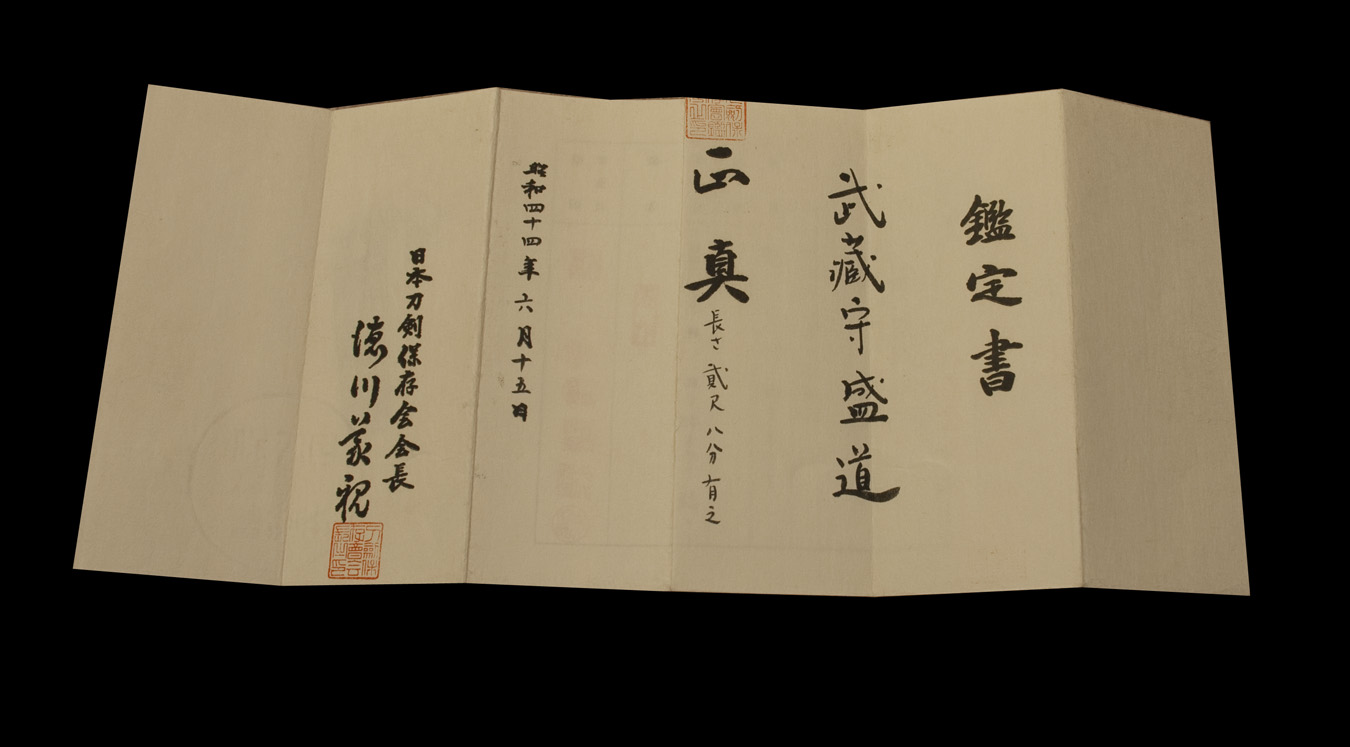 鑑定書
武藏守盛道
正真
長サ貳尺八分有之
昭和四十四年六月十五日
日本刀剣保存会会長
徳川義親